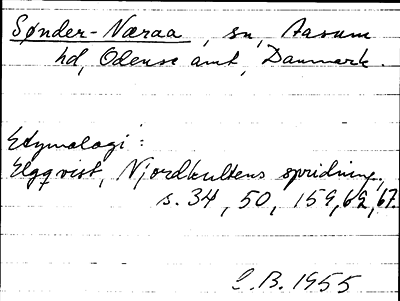 Sønder-Næraa, sn, Aasum
hd, Odense amt, Danmark.
Etymologi:
Elgqvist, Njordkultens spridning,
s. 34, 50, 159, 62, 67.
E.B. 1955